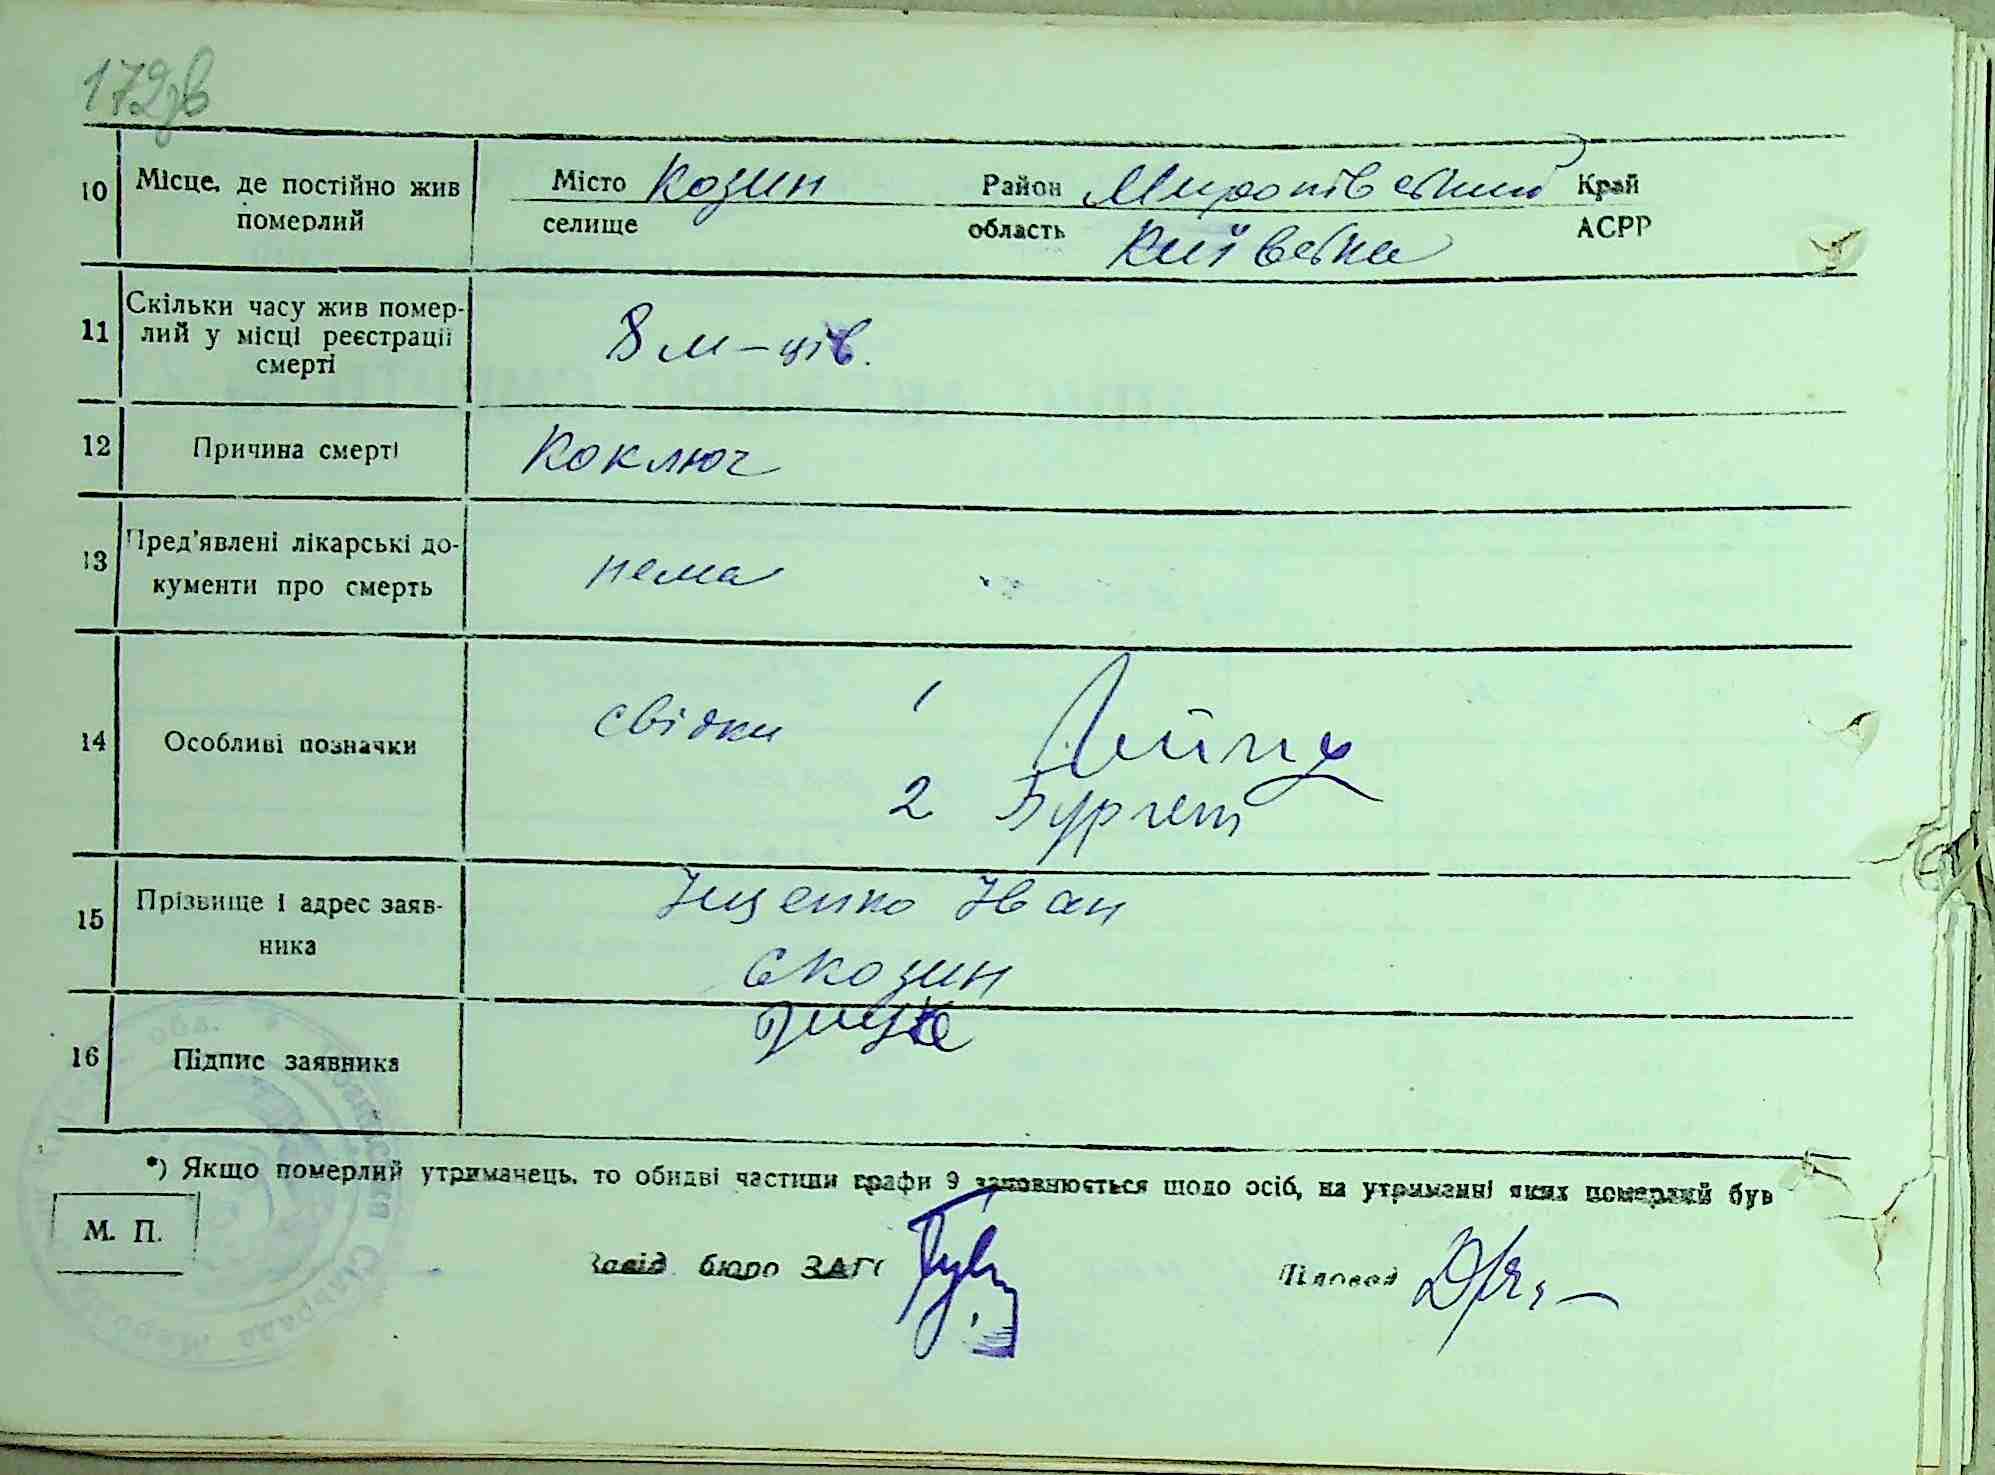 172зв
10 Місце, де постійно жив померлий
Місто Козин Район Миронівський Край
селище область Київська АСРР
11 Скільки часу жив помер-
лий у місці реєстрації
смерті
8 м-ців.
12 Причина смерті Коключ
13 Пред'явлені лікарські до-
кументи про смерть
нема
14 Особливі позначки
свідки 1
2
15 Прізвище і адрес заяв-
ника
Іщенко Іван
с Козин
16 Підпис заявника
*) Якщо померлий утриманець, то обидві частини графи 9 заповнюється щодо осіб, на утриманні яких померлий був
М. П.
Завід бюро ЗАГС Діловод